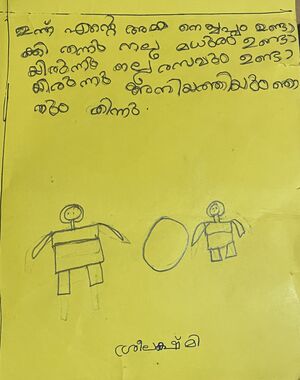 ഇന്ന് എന്റെ അമ്മ നെയ്യപ്പം ഉണ്ടാ
ക്കി തന്നു നല്ല മധുരം ഉണ്ടാ
യിരുന്നു നല്ല രസവും ഉണ്ടാ
യിരുന്നു അനിയത്തിയും ഞാ
നും തിന്നു
ശ്രീലക്ഷ്മി